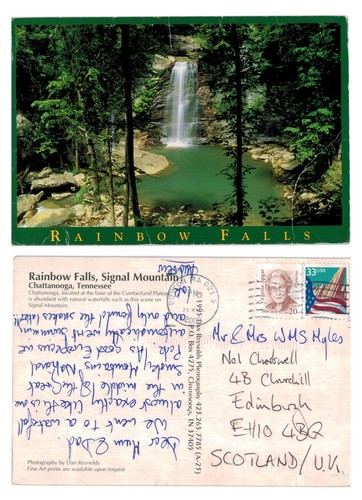 RAINBOW FALLS
Rainbow Falls, Signal Mountain
Chattanooga, Tennessee
Chattanooga, located at the base of the Cumberland Plateau
is abundant with natural waterfalls such as this scene on
Signal Mountain.
Dear Mum & Dad,
We went to a waterfall
almost exactly like this one
in the middle of the Great
Smokey Mountains National
Park. The good Experience
automatically went swimming
and only found the snakes later!
love
Andrew
Photography by Dan Reynolds
Fine Art prints are available upon request
©1995 Dan Reynolds Photography 423 265-7785 (A-23)
P.O. Box 4275, Chattanooga, TN 37405
20
33 USA
Mr & Mrs WMS Myles
No1 Chockwell
4B Churchill
Edinburgh
EH10 4BQ
SCOTLAND/U.K.